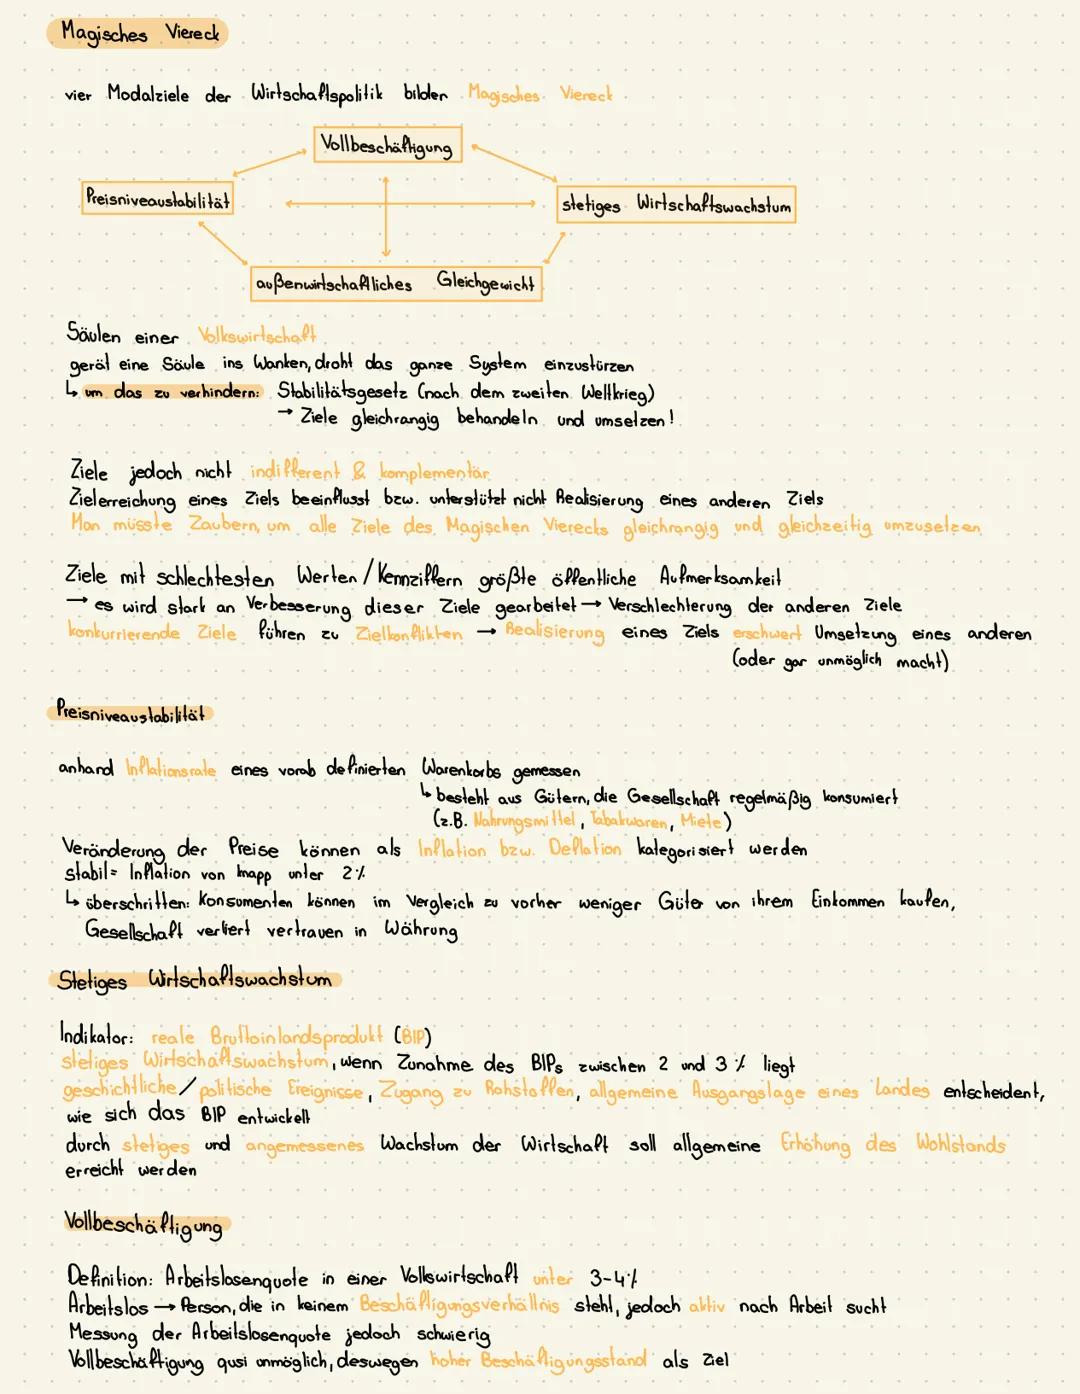 Magisches Viereck
vier Modalziele der Wirtschaftspolitik bilden Magisches Viereck
Vollbeschäftigung
Preisniveaustabilität
stetiges Wirtschaftswachstum
außenwirtschaftliches Gleichgewicht
Säulen einer Volkswirtschaft
gerät eine Säule ins Wanken, droht das ganze System einzustürzen
↳ um das zu verhindern: Stabilitätsgesetz (nach dem zweiten Weltkrieg)
→ Ziele gleichrangig behandeln und umsetzen!
Ziele jedoch nicht indifferent & komplementär
Zielerreichung eines Ziels beeinflusst bzw. unterstützt nicht Realisierung eines anderen Ziels
Man müsste Zaubern, um alle Ziele des Magischen Vierecks gleichrangig und gleichzeitig umzusetzen
Ziele mit schlechtesten Werten / Kennziffern größte öffentliche Aufmerksamkeit
→ es wird stark an Verbesserung dieser Ziele gearbeitet → Verschlechterung der anderen Ziele
konkurrierende Ziele führen zu Zielkonflikten → Realisierung eines Ziels erschwert Umsetzung eines anderen
(oder gar unmöglich macht)
Preisniveaustabilität
anhand Inflationsrate eines vorab definierten Warenkorbs gemessen
↳ besteht aus Gütern, die Gesellschaft regelmäßig konsumiert
(z.B. Nahrungsmittel, Tabakwaren, Miete)
Veränderung der Preise können als Inflation bzw. Deflation kategorisiert werden
stabil = Inflation von knapp unter 2%
↳ überschritten: Konsumenten können im Vergleich zu vorher weniger Güter von ihrem Einkommen kaufen,
Gesellschaft verliert vertrauen in Währung
Stetiges Wirtschaftswachstum
Indikator: reale Bruttoinlandsprodukt (BIP)
stetiges Wirtschaftswachstum, wenn Zunahme des BIPs zwischen 2 und 3% liegt
geschichtliche / politische Ereignisse, Zugang zu Rohstoffen, allgemeine Ausgangslage eines Landes entscheident,
wie sich das BIP entwickelt
durch stetiges und angemessenes Wachstum der Wirtschaft soll allgemeine Erhöhung des Wohlstands
erreicht werden
Vollbeschäftigung
Definition: Arbeitslosenquote in einer Volkswirtschaft unter 3-4%
Arbeitslos → Person, die in keinem Beschäftigungsverhältnis steht, jedoch aktiv nach Arbeit sucht
Messung der Arbeitslosenquote jedoch schwierig
Vollbeschäftigung qusi unmöglich, deswegen hoher Beschäftigungsstand als Ziel